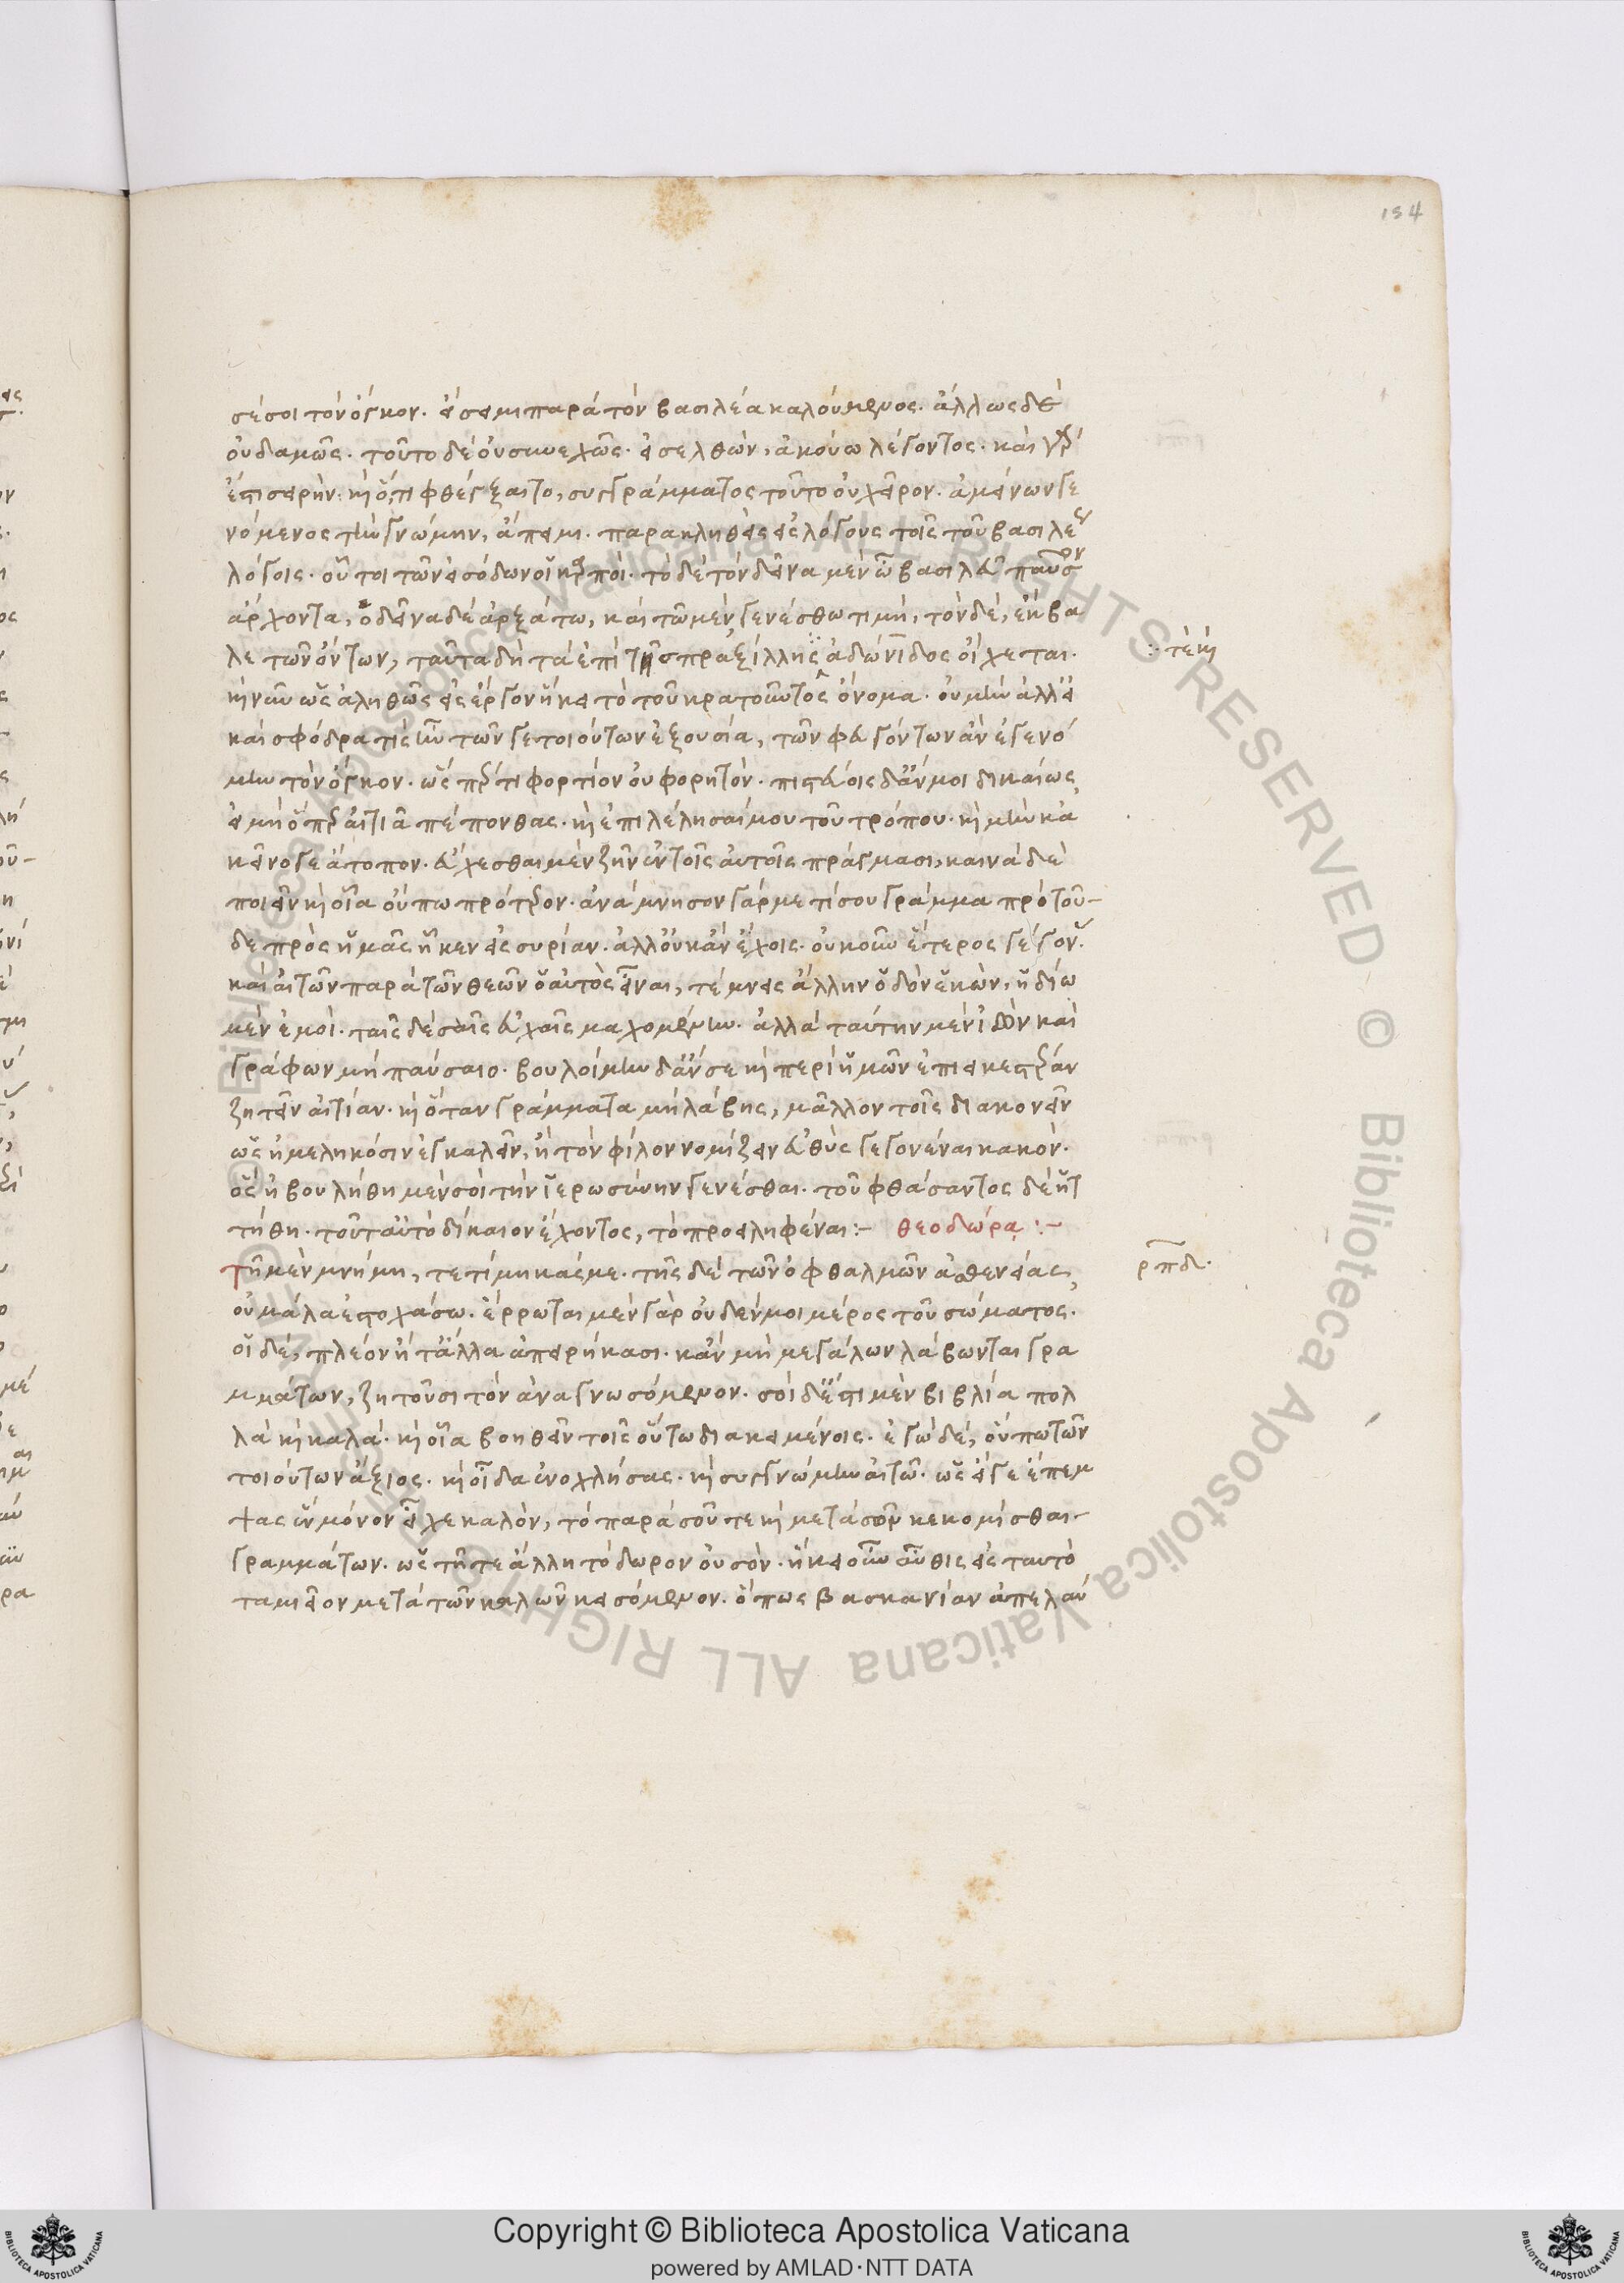 154
σέσοι τὸν ὄγκον. εἴσειμι παρὰ τὸν βασιλέα καλούμενος. ἄλλως δὲ
οὐδαμῶς. τοῦτο δὲ οὐ συνεχῶς. εἰσελθὼν, ἀκούω λέγοντος. καὶ γὰρ
ἔστι σειρήν. καὶ ὅ,τι φθέγξαιτο, συγγράμματος τοῦτο οὐ χεῖρον. ἀμείνων γε
νόμενος τὴν γνώμην, ἄπειμι. παρακληθεὶς εἰς λόγους τοῖς τοῦ βασιλέως
λόγοις. οὗτοι τῶν εἰσόδων οἱ καρποί. τὸ δὲ τὸν δεῖνα μὲν ὦ βασιλεῦ παῦσον
ἄρχοντα, ὁ δεῖνα δὲ ἀρξάτω, καὶ τῷ μὲν γενέσθω τιμή, τὸν δὲ, ἔκβα
λε τῶν ὄντων, ταῦτα δὴ τὰ ἐπὶ τῆς πραξίλλης ἀδώνιδος οἴχεται.
: τὲ καὶ
καὶ νῦν ὡς ἀληθῶς εἰς ἔργον ἥκει τὸ τοῦ κρατοῦντος ὄνομα. οὐ μὴν ἀλλ' εἰ
καὶ σφόδρα τις ἦν τῶν γε τοιούτων ἐξουσία, τῶν φευγόντων ἂν ἐγενό
μην τὸν ὄγκον. ὥσπερ τι φορτίον οὐ φορητόν. πιστεύοις δ' ἄν μοι δικαίως,
εἰ μὴ ὅπερ αἰτιᾷ πέπονθας. καὶ ἐπιλέλησαί μου τοῦ τρόπου. καὶ μὴν κἀ
κεῖνό γε ἄτοπον. εὔχεσθαι μὲν ζῆν ἐν τοῖς αὐτοῖς πράγμασι, καινὰ δὲ
ποιεῖν καὶ οἷα οὔπω πρότερον. ἀνάμνησον γάρ με τί σου γράμμα πρὸ τοῦ-
δε πρὸς ἡμᾶς ἧκεν εἰς συρίαν. ἀλλ' οὐκ ἂν ἔχοις. οὐκοῦν ἕτερος γέγονας.
καὶ αἰτῶν παρὰ τῶν θεῶν ὁ αὐτὸς εἶναι, τέμνεις ἄλλην ὁδὸν ἑκὼν, ἡδίω
μὲν ἐμοί. ταῖς δὲ σαῖς εὐχαῖς μαχομένην. ἀλλὰ ταύτην μὲν ἰὼν καὶ
γράφων μὴ παύσαιο. βουλοίμην δ' ἄν σε καὶ περὶ ἡμῶν ἐπιεικεστέραν
ζητεῖν αἰτίαν. καὶ ὅταν γράμματα μὴ λάβης, μᾶλλον τοῖς διακονεῖν
ὡς ἠμεληκόσιν ἐγκαλεῖν, ἢ τὸν φίλον νομίζειν εὐθὺς γεγονέναι κακόν.
ὃς ἠβουλήθη μὲν σοὶ τὴν ἱερωσύνην γενέσθαι. τοῦ φθάσαντος δὲ ἡτ
τήθη. τοῦτ' αὐτὸ δίκαιον ἔχοντος, τὸ προειληφέναι :- θεοδώρῳ :-
ρπδ.
Τῇ μὲν μνήμη, τετίμηκάς με. τῆς δὲ τῶν ὀφθαλμῶν ἀσθενείας,
οὐ μάλα ἐστοχάσω. ἔρρωται μὲν γὰρ οὐδέν μοι μέρος τοῦ σώματος.
οἱ δὲ, πλέον ἢ τἄλλα ἀπειρήκασι. κἂν μὴ μεγάλων λάβωνται γρα
μμάτων, ζητοῦσι τὸν ἀναγνωσόμενον. σοὶ δ' ἔστι μὲν βιβλία πολ
λὰ καὶ καλά. καὶ οἷα βοηθεῖν τοῖς οὕτω διακειμένοις. ἐγὼ δὲ, οὔπω τῶν
τοιούτων ἄξιος. καὶ οἶδα ἐνοχλήσας. καὶ συγγνώμην αἰτῶ. ὡς εἴγε ἔπεμ
ψας ἓν μόνον εἶχε καλὸν, τὸ παρὰ σοῦ τε καὶ μετὰ σῶν κεκομίσθαι-
γραμμάτων. ὡς τῇ τε ἄλλη τὸ δῶρον οὐ σόν. ἥκει οὖν αὖθις εἰς ταυτὸ
ταμιεῖον μετὰ τῶν καλῶν κεισόμενον. ὅπως βασκανίαν ἀπελαύ
Copyright © Biblioteca Apostolica Vaticana
powered by AMLAD·NTT DATA